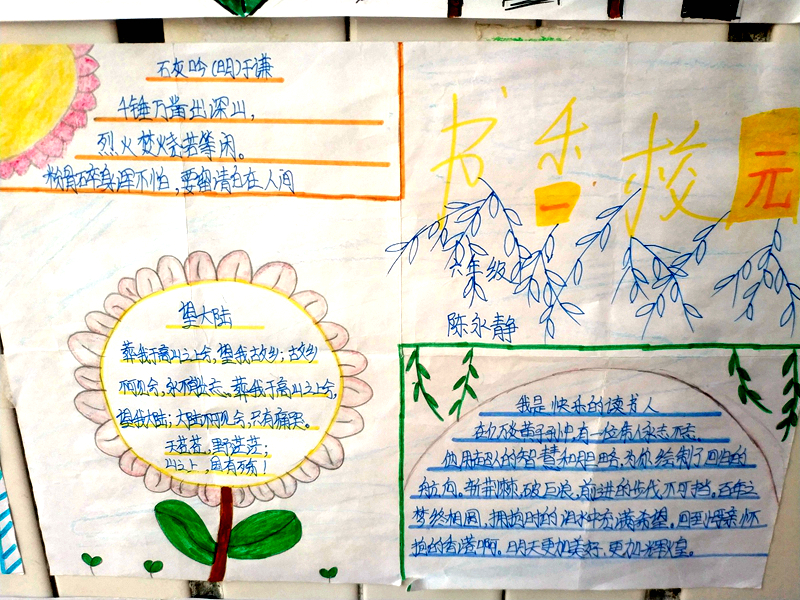 石灰吟(明)于谦
千锤万凿出深山,
烈火焚烧若等闲。
粉骨碎身浑不怕,要留清白在人间
书香校元
六年级
陈永静
望大陆
葬我于高山之上兮,望我故乡;故乡
不可见兮,永不能忘。葬我于高山之上兮,
望我大陆;大陆不可见兮,只有痛哭。
天苍苍,野茫茫;
山之上,国有殇!
我是快乐的读书人
在炎黄子孙中,有一位伟人永志不忘,
他用超人的智慧和胆略,为你绘制了回归的
航向。斩荆棘,破巨浪,前进的步伐不可挡。百年之
梦终相圆,拥抱时的泪水中充满希望,回到母亲怀
抱的香港啊。明天更加美好,更加辉煌。